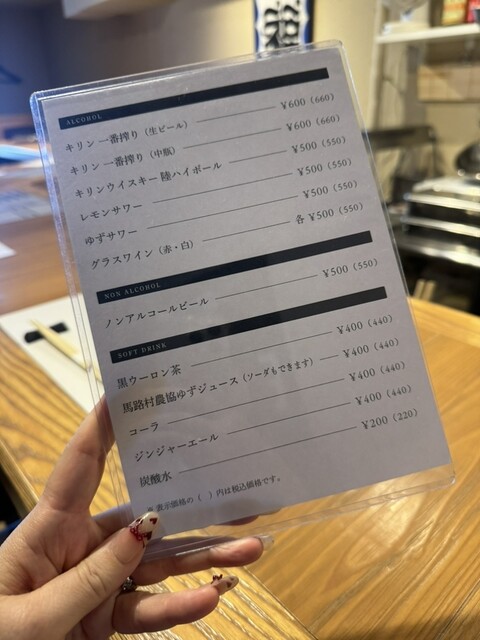 ALCOHOL
キリン 一番搾り（生ビール） ¥600（660）
キリン 一番搾り（中瓶） ¥600（660）
キリンウイスキー 陸ハイボール ¥500（550）
レモンサワー ¥500（550）
ゆずサワー ¥500（550）
グラスワイン（赤・白） 各 ¥500（550）
NON ALCOHOL
ノンアルコールビール ¥500（550）
SOFT DRINK
黒ウーロン茶 ¥400（440）
馬路村農協ゆずジュース（ソーダもできます） ¥400（440）
コーラ ¥400（440）
ジンジャーエール ¥400（440）
炭酸水 ¥200（220）
※ 表示価格の（ ）内は税込価格です。